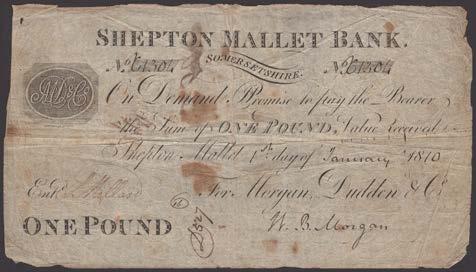 SHEPTON MALLET BANK.
SOMERSETSHIRE.
No. C1304 No. C1304
On Demand I Promise to pay the Bearer
the Sum of ONE POUND, Value Received
Shepton Mallet 1st day of January 1810
Entd. For Morgan, Duddon & Co.
ONE POUND W. B. Morgan